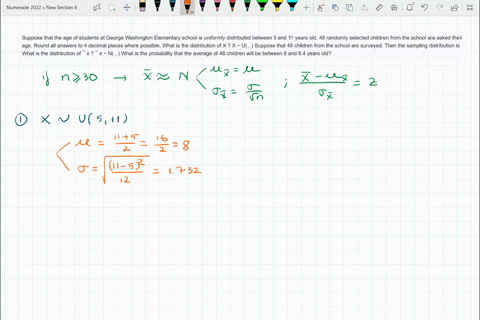 Numerade 2022 » New Section 6
Suppose that the age of students at George Washington Elementary school is uniformly distributed between 5 and 11 years old. 48 randomly selected children from the school are asked their
age. Round all answers to 4 decimal places where possible. What is the distribution of X ? X ~ U( , ) Suppose that 48 children from the school are surveyed. Then the sampling distribution is
What is the distribution of ¯ x ? ¯ x ~ N( , ) What is the probability that the average of 48 children will be between 8 and 8.4 years old?
if n ≥ 30 → x̄ ≈ N < μx̄ = μ
σx̄ = σ/√n ; (x̄ - μx̄)/σx̄ = z
① X ~ U(5,11)
μ = (11+5)/2 = 16/2 = 8
σ = √((11-5)²/12) = 1.732